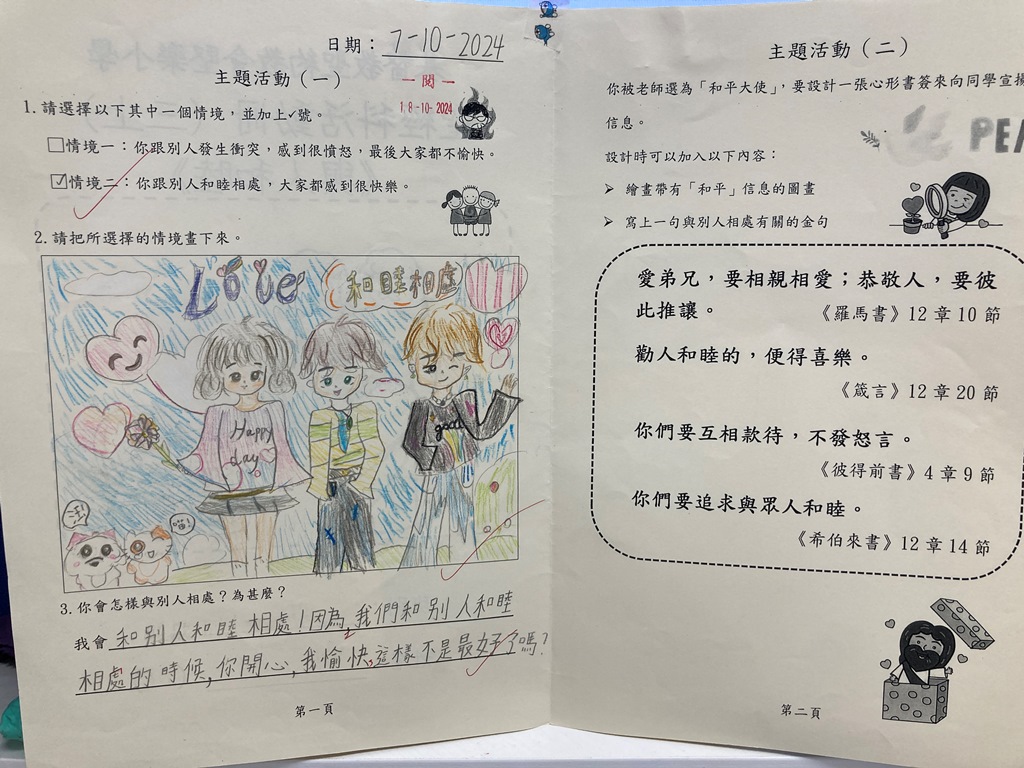 日期：7-10-2024
主題活動（一）
一 閱 一
18-10-2024
1.請選擇以下其中一個情境，並加上✓號。
□情境一：你跟別人發生衝突，感到很憤怒，最後大家都不愉快。
☑情境二：你跟別人和睦相處，大家都感到很快樂。
2.請把所選擇的情境畫下來。
Love
和睦相處
Happy day
good
3.你會怎樣與別人相處？為甚麼？
我會 和別人和睦相處！因為，我們和別人和睦
相處的時候，你開心，我愉快，這樣不是最好了嗎？
第一頁
主題活動（二）
你被老師選為「和平大使」，要設計一張心形書簽來向同學宣揚
信息。
PEA
設計時可以加入以下內容：
➢ 繪畫帶有「和平」信息的圖畫
➢ 寫上一句與別人相處有關的金句
愛弟兄，要相親相愛；恭敬人，要彼
此推讓。 《羅馬書》12 章 10 節
勸人和睦的，便得喜樂。
《箴言》12 章 20 節
你們要互相款待，不發怨言。
《彼得前書》4 章 9 節
你們要追求與眾人和睦。
《希伯來書》12 章 14 節
第二頁